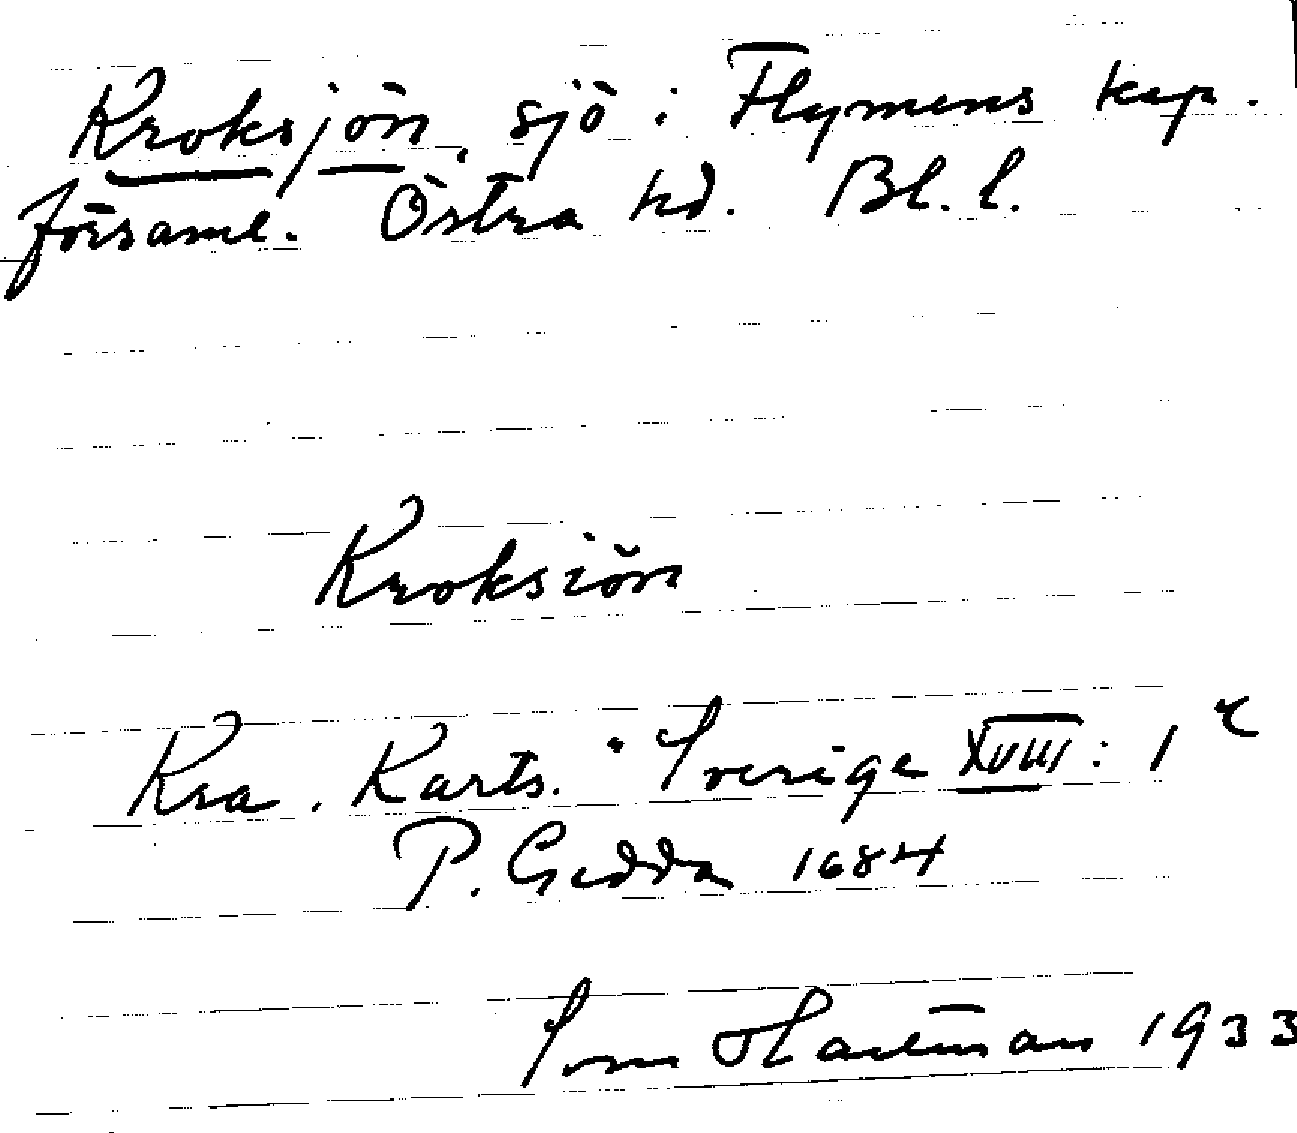 Kroksjön, sjö i Flymens kap.
församl. Östra hd. Bl. l.
Kroksiön
Kra. Karts. Sverige XVIII: 1
P. Gedda 1684
Hartman 1933